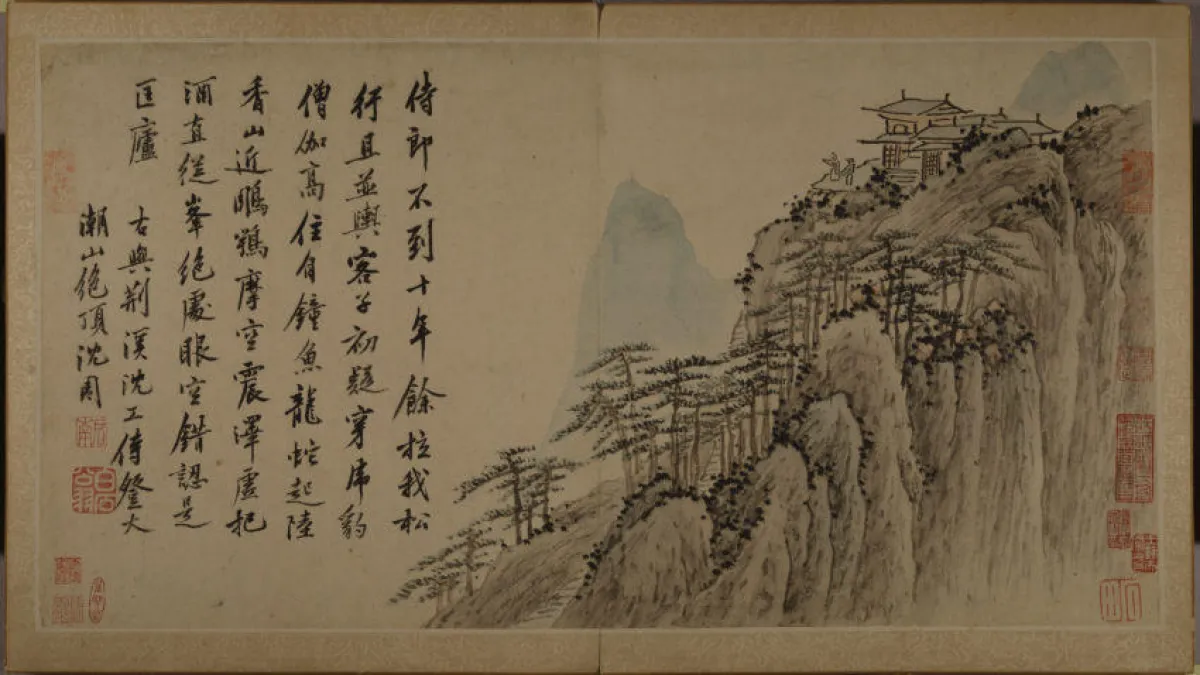 侍郎不到十年餘拉我松
行且並輿客子初疑穿虎豹
僧伽高住自鐘魚龍蛇起陸
香山近鵰鶚摩空震澤虛把
酒直從峯絕處眼空錯認是
匡廬 右與荊溪沈工侍登大
潮山絕頂沈周
白石翁